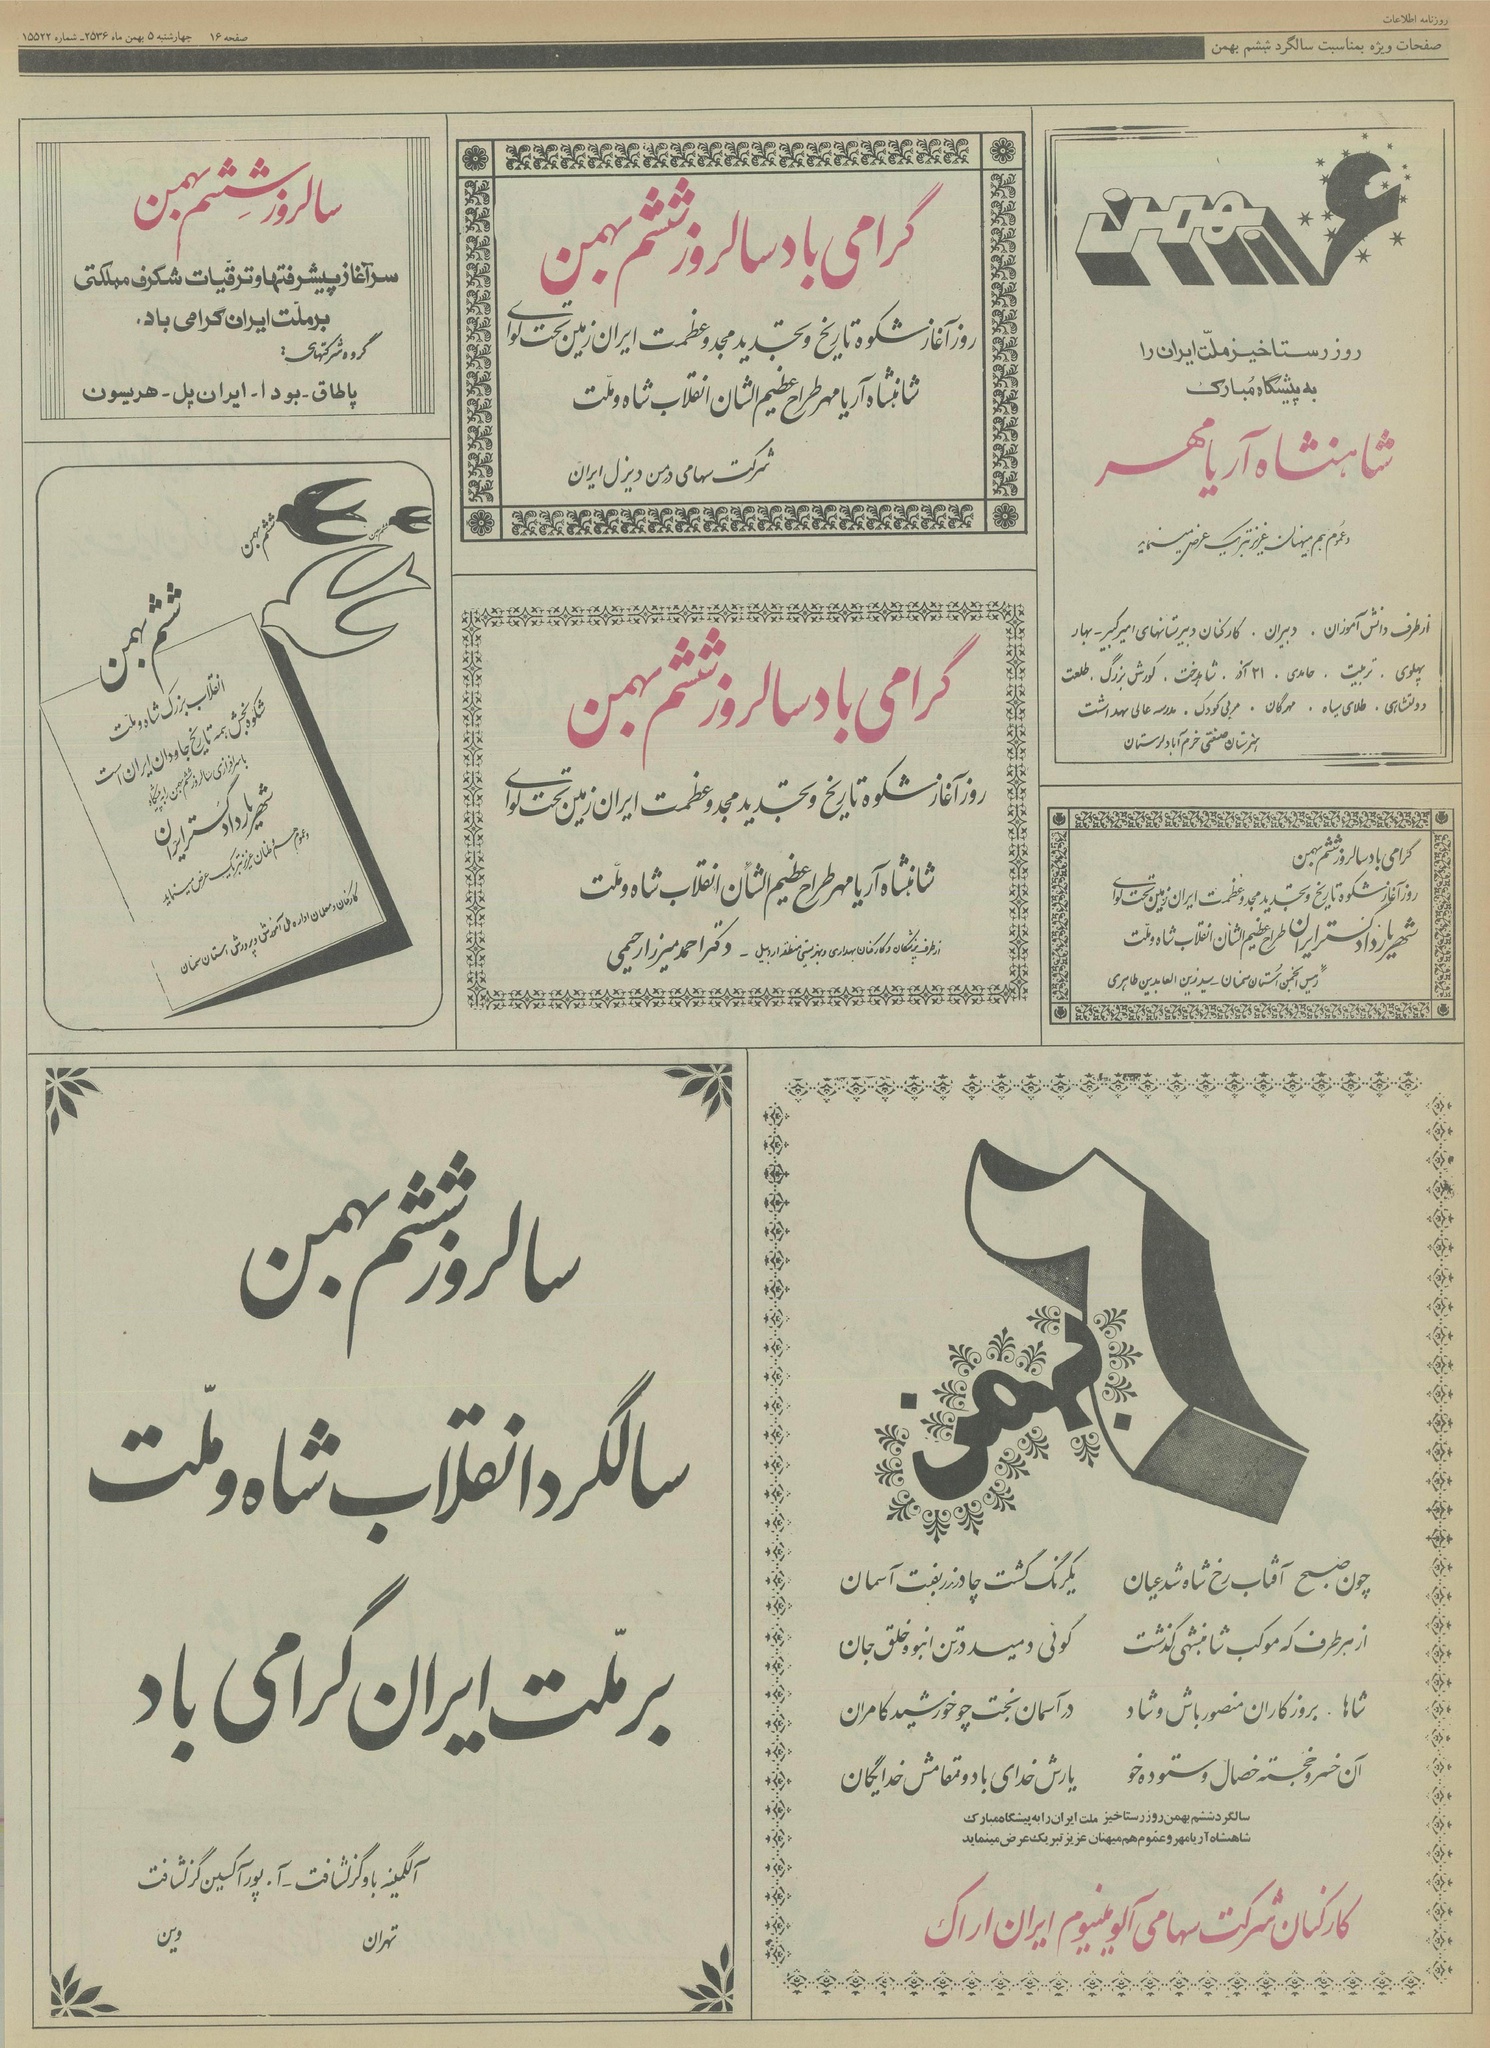 روزنامه اطلاعات
صفحات ویژه بمناسبت سالگرد ششم بهمن
صفحه ۱۶ چهارشنبه ۵ بهمن ماه ۲۵۳۶ـ شماره ۱۵۵۲۲
۶ بهمن
روز رستاخیز ملّت ایران را
به پیشگاه مُبارک
شاهنشاه آریامهر
و عموم هم میهنان عزیز تبریک عرض مینماید
از طرف دانش آموزان ، دبیران ، کارکنان دبیرستانهای امیرکبیر - بهار
پهلوی ، تربیت ، حامدی ، ۲۱ آذر ، شاهدخت ، کورش بزرگ ، طلعت
دولتشاهی ، طلای سیاه ، مهرگان ، مربی کودک ، مدرسه عالی بهداشت
هنرستان صنعتی خرم آباد لرستان
گرامی باد سالروز ششم بهمن
روز آغاز شکوه تاریخ و تجدید مجد و عظمت ایران زمین تحت لوای
شهریار دادگستر ایران طراح عظیم الشان انقلاب شاه و ملّت
رئیس انجمن استان سمنان - سید زین العابدین طاهری
گرامی باد سالروز ششم بهمن
روز آغاز شکوه تاریخ و تجدید مجد و عظمت ایران زمین تحت لوای
شاهنشاه آریامهر طراح عظیم الشان انقلاب شاه و ملّت
شرکت سهامی دمن دیزل ایران
گرامی باد سالروز ششم بهمن
روز آغاز شکوه تاریخ و تجدید مجد و عظمت ایران زمین تحت لوای
شاهنشاه آریامهر طراح عظیم الشان انقلاب شاه و ملّت
از طرف پزشکان و کارکنان بهداری و بهزیستی منطقه اردبیل - دکتر احمد میرزا رحیمی
سالروز ششم بهمن
سرآغاز پیشرفتها و ترقّیات شگرف مملکتی
بر ملّت ایران گرامی باد.
گروه شرکتهای:
پاطاق - بودا - ایران پل - هریسون
ششم بهمن
ششم بهمن
ششم بهمن
انقلاب بزرگ شاه و ملت
شکوه بخش همه تاریخ جاودان ایران است
با سرافرازی سالروز ششم بهمن را به پیشگاه
شهریار دادگستر ایران
و عموم هموطنان عزیز تبریک عرض مینماید
کارکنان و معلمان اداره کل آموزش و پرورش استان سمنان
۶ بهمن
چون صبح آفتاب رخ شاه شد عیان یکرنگ گشت چادر زربفت آسمان
از هر طرف که موکب شاهنشهی گذشت گوئی دمید در تن انبوه خلق جان
شاها ، بروزگاران منصور باش و شاد در آسمان بخت چو خورشید کامران
آن خسرو خجسته خصال و ستوده خو یارش خدای باد و مقامش خدایگان
سالگرد ششم بهمن روز رستاخیز ملت ایران را به پیشگاه مبارک
شاهنشاه آریامهر و عموم هم میهنان عزیز تبریک عرض مینماید
کارکنان شرکت سهامی آلومینیوم ایران اراک
سالروز ششم بهمن
سالگرد انقلاب شاه و ملّت
بر ملّت ایران گرامی باد
آلگمینه باوگزلشافت - آ. پور آکسین گزلشافت
تهران وین